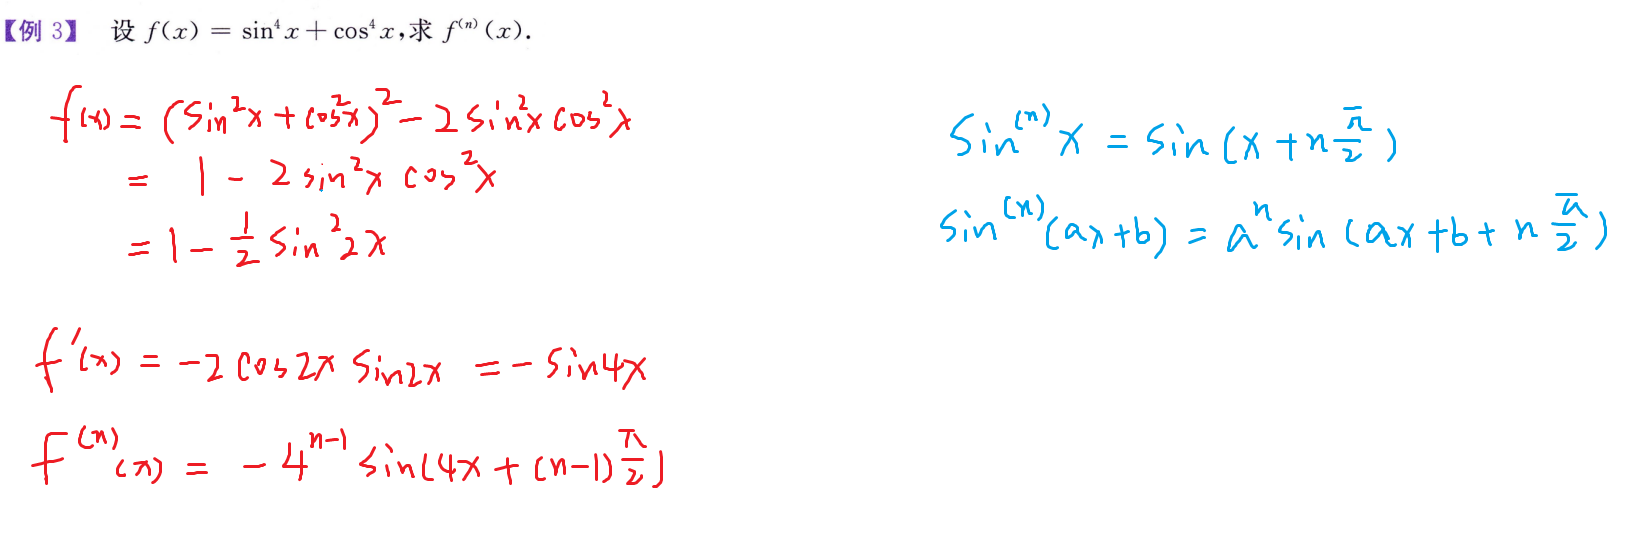 【例 3】 设 f(x) = sin⁴x + cos⁴x,求 f⁽ⁿ⁾(x).
f(x) = (sin²x + cos²x)² - 2 sin²x cos²x
= 1 - 2 sin²x cos²x
= 1 - 1/2 sin²2x
f'(x) = -2 cos2x sin2x = - sin4x
f⁽ⁿ⁾(x) = - 4ⁿ⁻¹ sin(4x + (n-1) π/2)
sin⁽ⁿ⁾x = sin(x + n π/2)
sin⁽ⁿ⁾(ax+b) = aⁿ sin(ax+b+ n π/2)